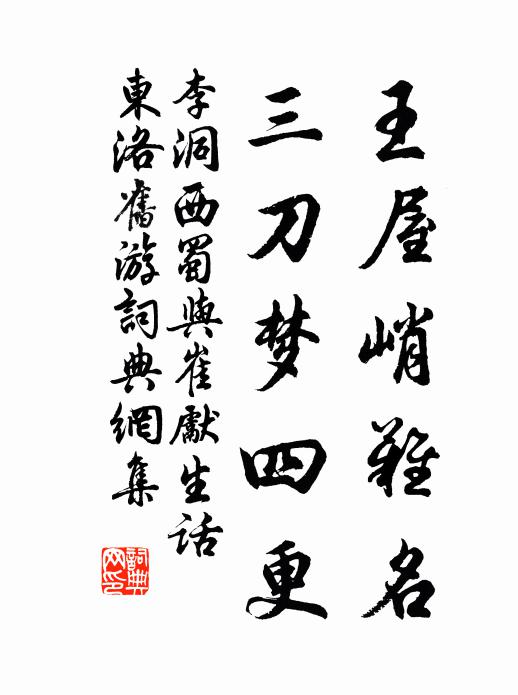 王屋峭難名
三刀梦四更
李洞西蜀與崔獻生話
東洛舊游詞典網集
詞典網印